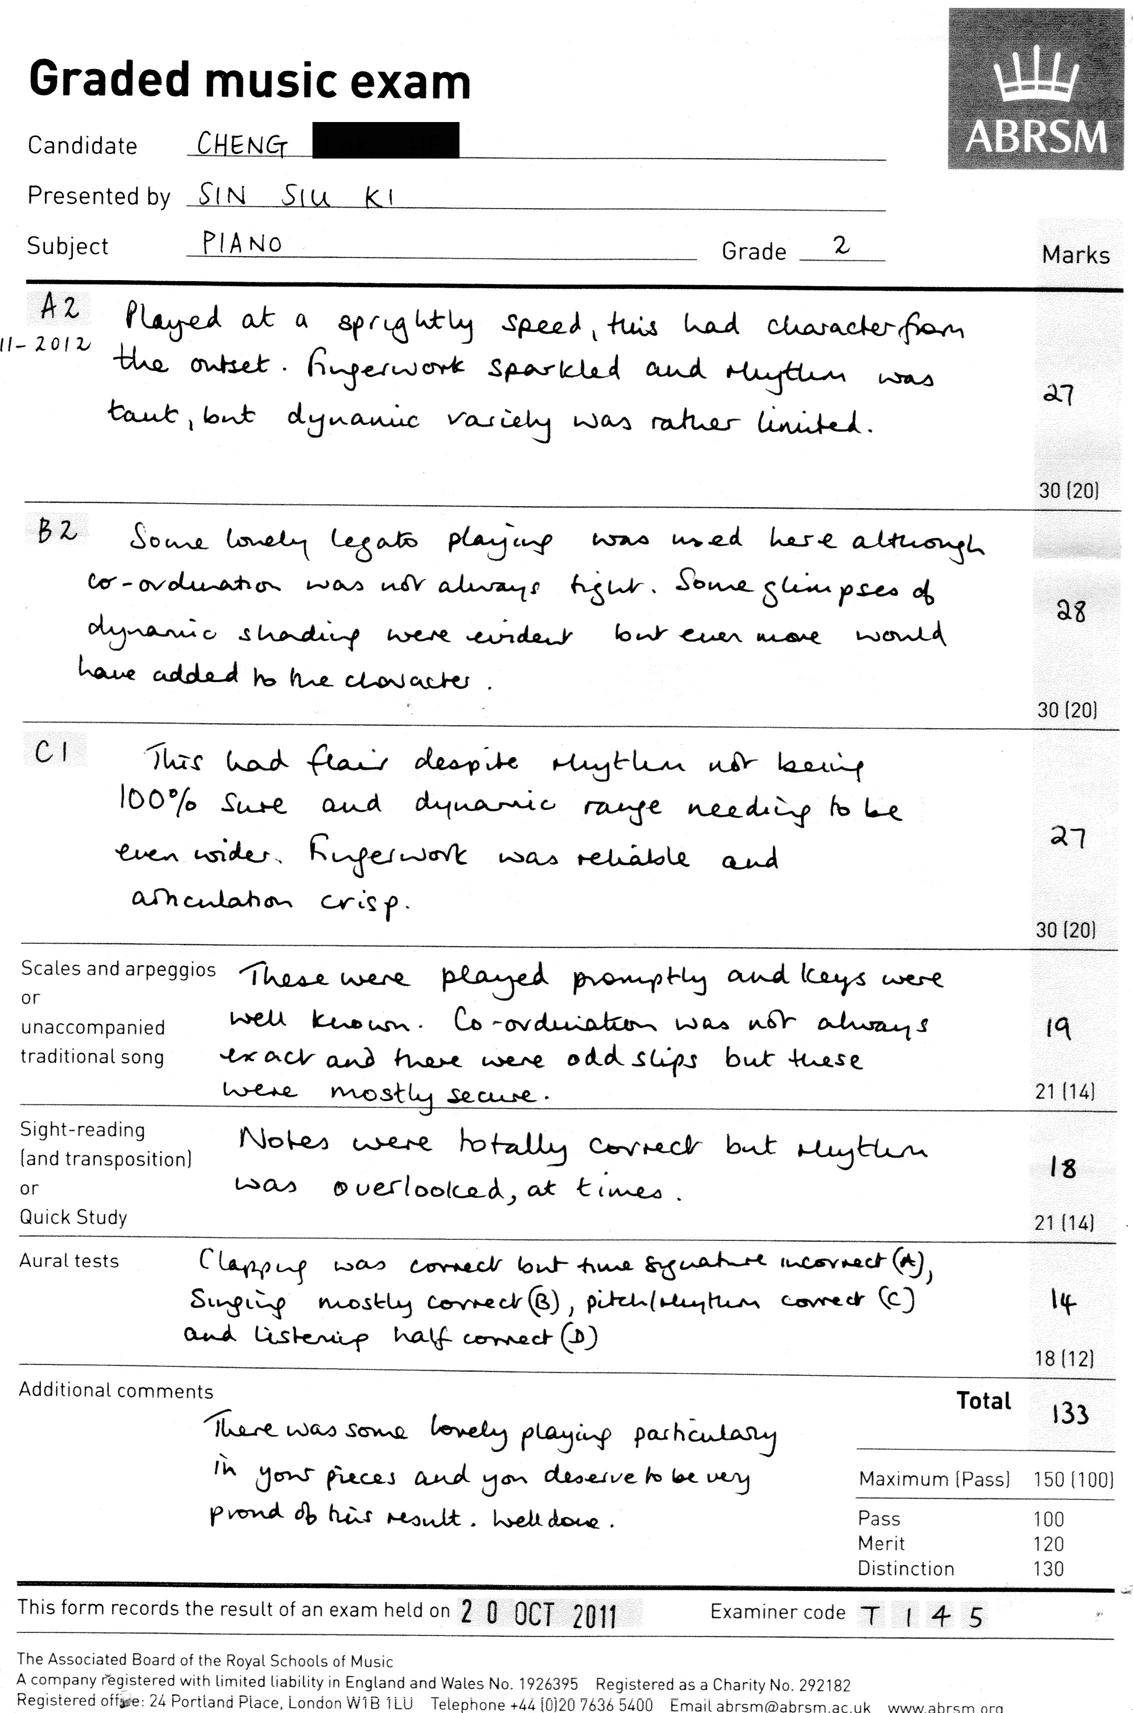 Graded music exam
ABRSM
Candidate CHENG
Presented by SIN SIU KI
Subject PIANO Grade 2 Marks
A2 Played at a sprightly speed, this had character from
11-2012 the outset. Fingerwork sparkled and rhythm was
taut, but dynamic variety was rather limited.
27
30 (20)
B2 Some lovely legato playing was used here although
co-ordination was not always tight. Some glimpses of
dynamic shading were evident but even more would
have added to the character.
28
30 (20)
C1 This had flair despite rhythm not being
100% sure and dynamic range needing to be
even wider. Fingerwork was reliable and
articulation crisp.
27
30 (20)
Scales and arpeggios
or
unaccompanied
traditional song
These were played promptly and keys were
well known. Co-ordination was not always
exact and there were odd slips but these
were mostly secure.
19
21 (14)
Sight-reading
(and transposition)
or
Quick Study
Notes were totally correct but rhythm
was overlooked, at times.
18
21 (14)
Aural tests
Clapping was correct but time signature incorrect (A),
Singing mostly correct (B), pitch/rhythm correct (C)
and listening half correct (D)
14
18 (12)
Additional comments
There was some lovely playing particulary
in your pieces and you deserve to be very
proud of this result. Well done.
Total 133
Maximum (Pass) 150 (100)
Pass 100
Merit 120
Distinction 130
This form records the result of an exam held on 20 OCT 2011 Examiner code T 1 4 5
The Associated Board of the Royal Schools of Music
A company registered with limited liability in England and Wales No. 1926395 Registered as a Charity No. 292182
Registered office: 24 Portland Place, London W1B 1LU Telephone +44 (0)20 7636 5400 Email abrsm@abrsm.ac.uk www.abrsm.org